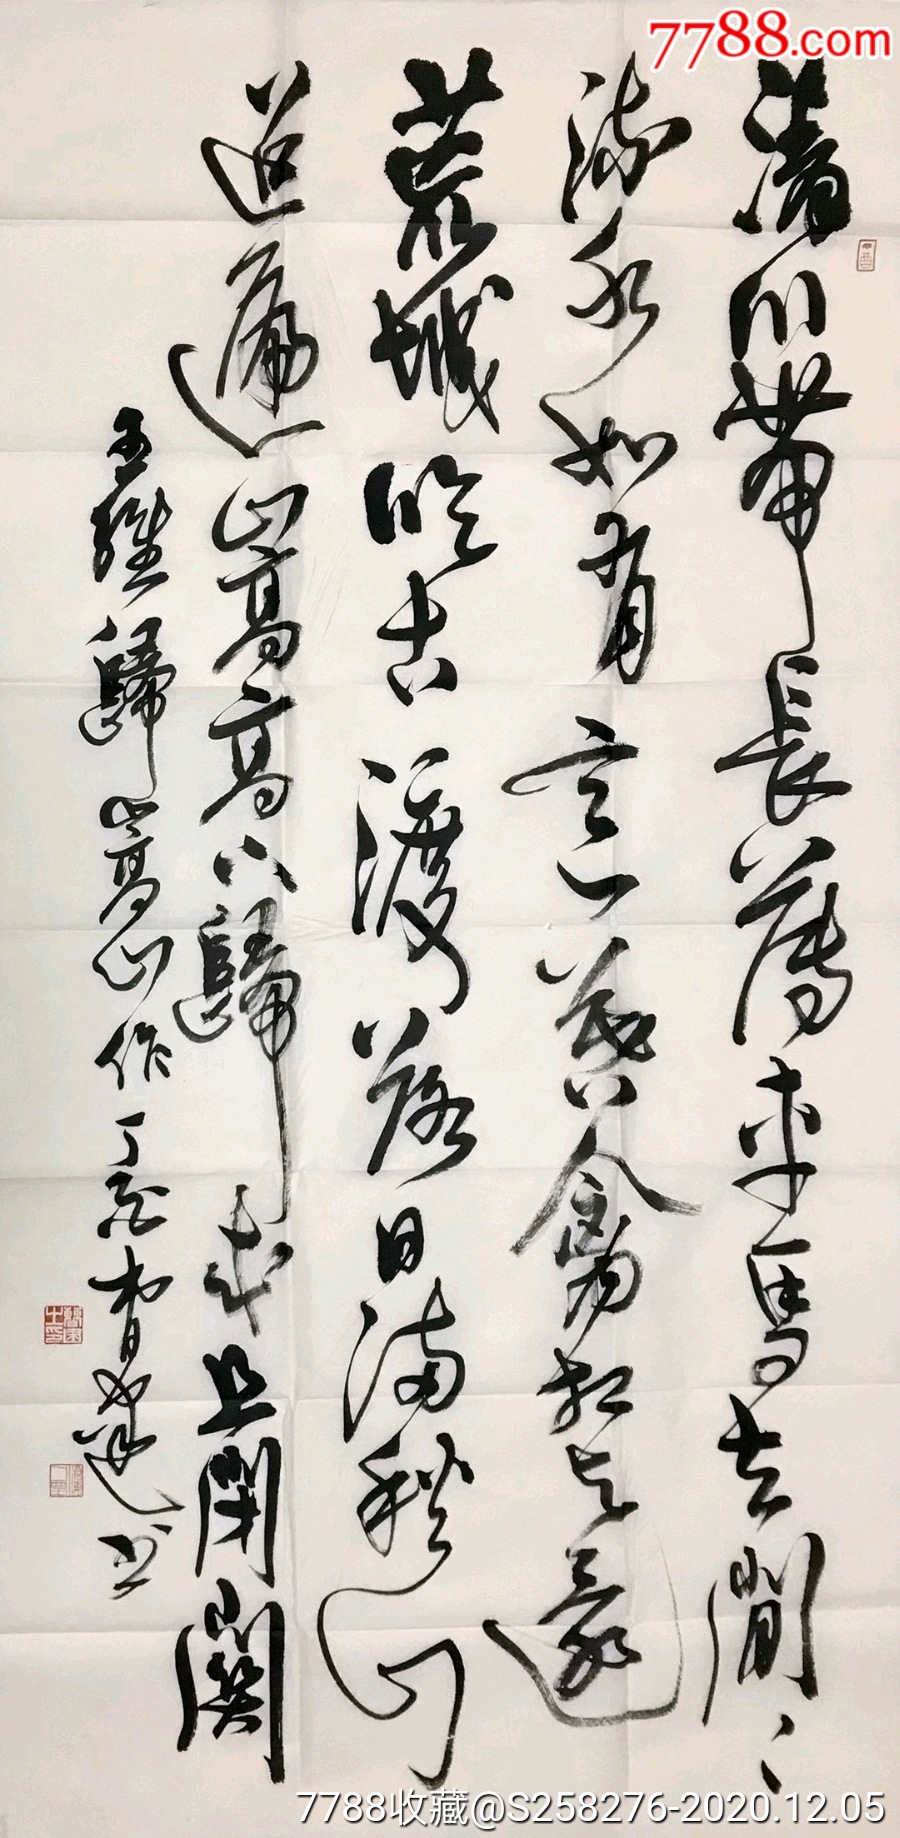 7788.com
清川帶長薄車馬去閒〻
流水如有意暮禽相与還
荒城臨古渡落日滿秋山
迢遞嵩高下歸来且閉關
王維歸嵩山作丁亥书
7788收藏@S258276-2020.12.05